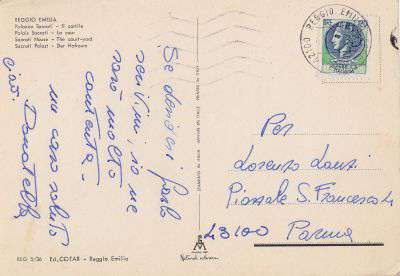 REGGIO EMILIA
Palazzo Sacrati - Il cortile
Palais Sacrati - La cour
Sacrati House - The court-yard
Sacrati Palast - Der Hofraum
42100 REGGIO EMILIA
Se desideri farlo
scrivimi, io ne
sarò molto
contenta.
un caro saluto
Ciao. Donatella
Per
Lorenzo Lanzi
Piazzale S. Francesco 4
43100 Parma
REG 5/36 Ed. COTAR - Reggio Emilia